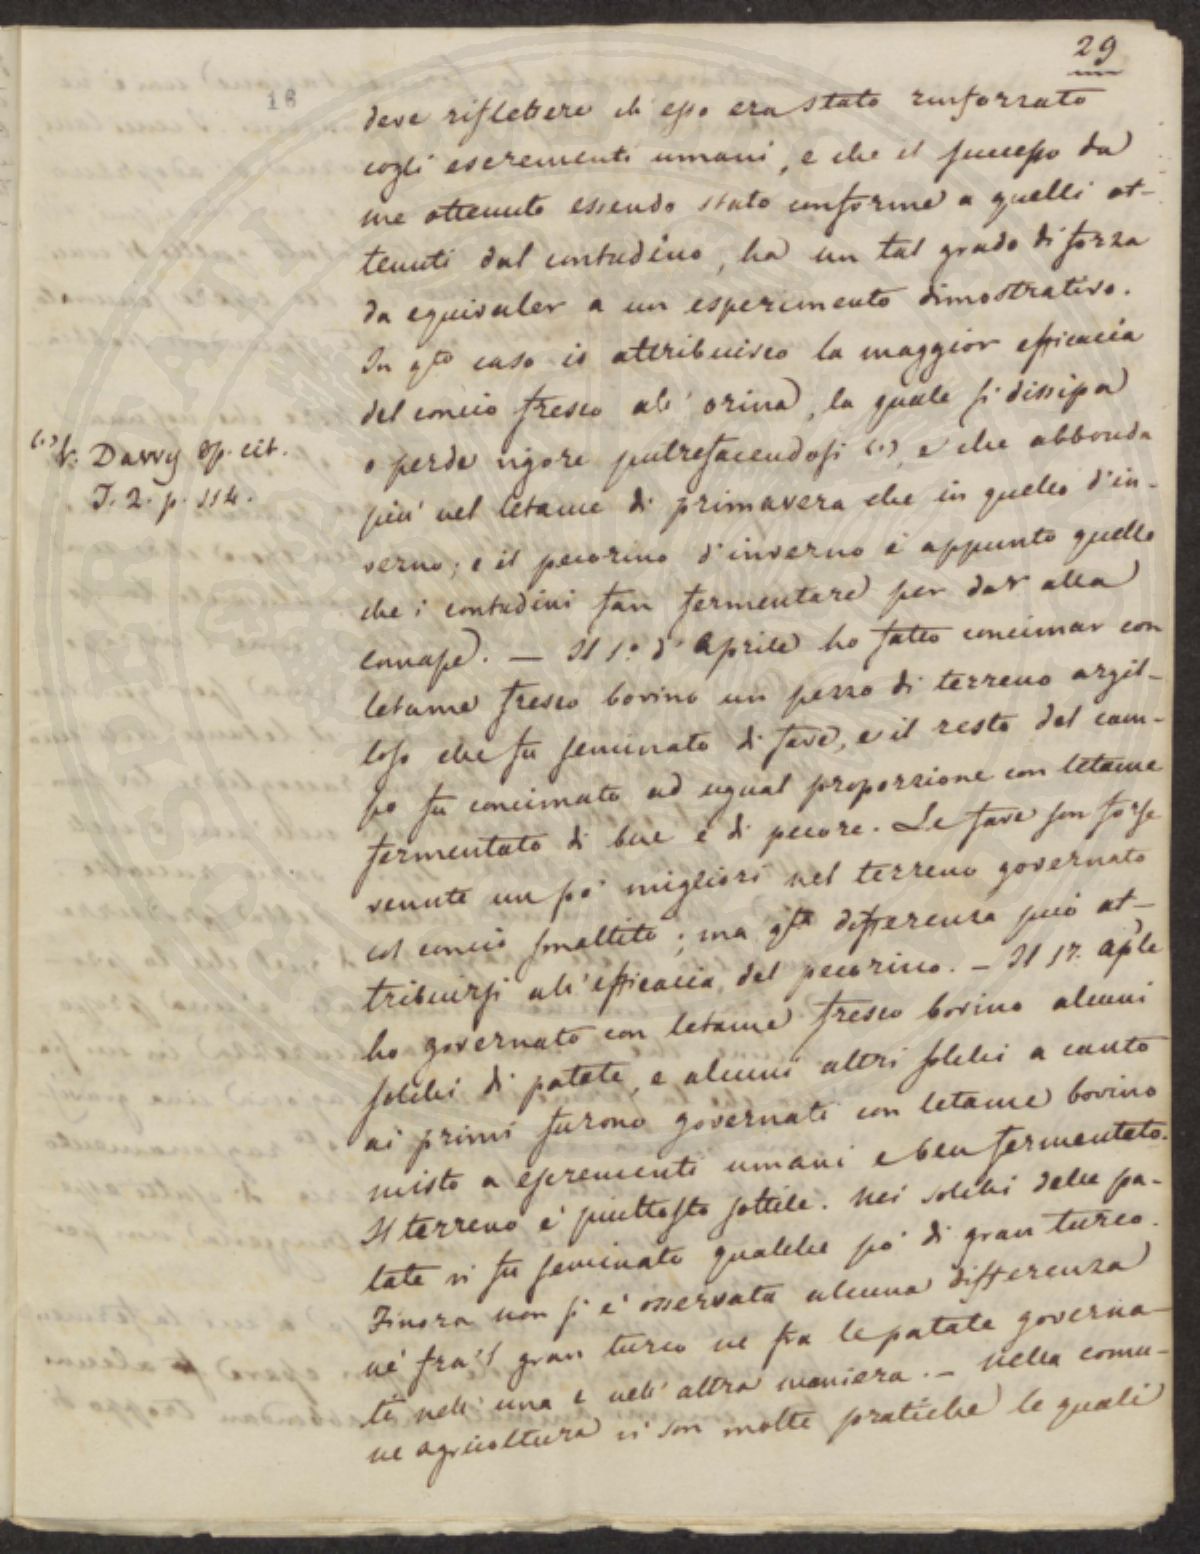 29
18
deve riflettere ch'esso era stato rinforzato
cogli escrementi umani, e che il successo da
me ottenuto essendo stato conforme a quelli ot-
tenuti dal contadino, ha un tal grado di forza
da equivaler a un esperimento dimostrativo.
In qto caso io attribuisco la maggior efficacia
del concio fresco all'orina, la quale si dissipa
o perde vigore putrefacendosi (1), e che abbonda
(1) V. Davvy op. cit.
T. 2. p. 114.
più nel letame di primavera che in quello d'in-
verno; e il pecorino d'inverno è appunto quello
che i contadini fan fermentare per dar alla
canape. — Il 1.° d'Aprile ho fatto concimar con
letame fresco bovino un pezzo di terreno argil-
loso che fu seminato di fave, e il resto del cam-
po fu concimato ad ugual proporzione con letame
fermentato di bue e di pecore. Le fave son forse
venute un pò migliori nel terreno governato
col concio smaltito; ma qsta differenza può at-
tribuirsi all'efficacia del pecorino. — Il 17. Aple
ho governato con letame fresco bovino alcuni
solchi di patate, e alcuni altri solchi a canto
ai primi furono governati con letame bovino
misto a escrementi umani e ben fermentato.
Il terreno è piuttosto sottile. Nei solchi delle pa-
tate vi fu seminato qualche pò di gran turco.
Finora non si è osservata alcuna differenza
nè fra'l gran turco nè fra le patate governa-
te nell'una e nell'altra maniera. — Nella comu-
ne agricoltura vi son molte pratiche le quali